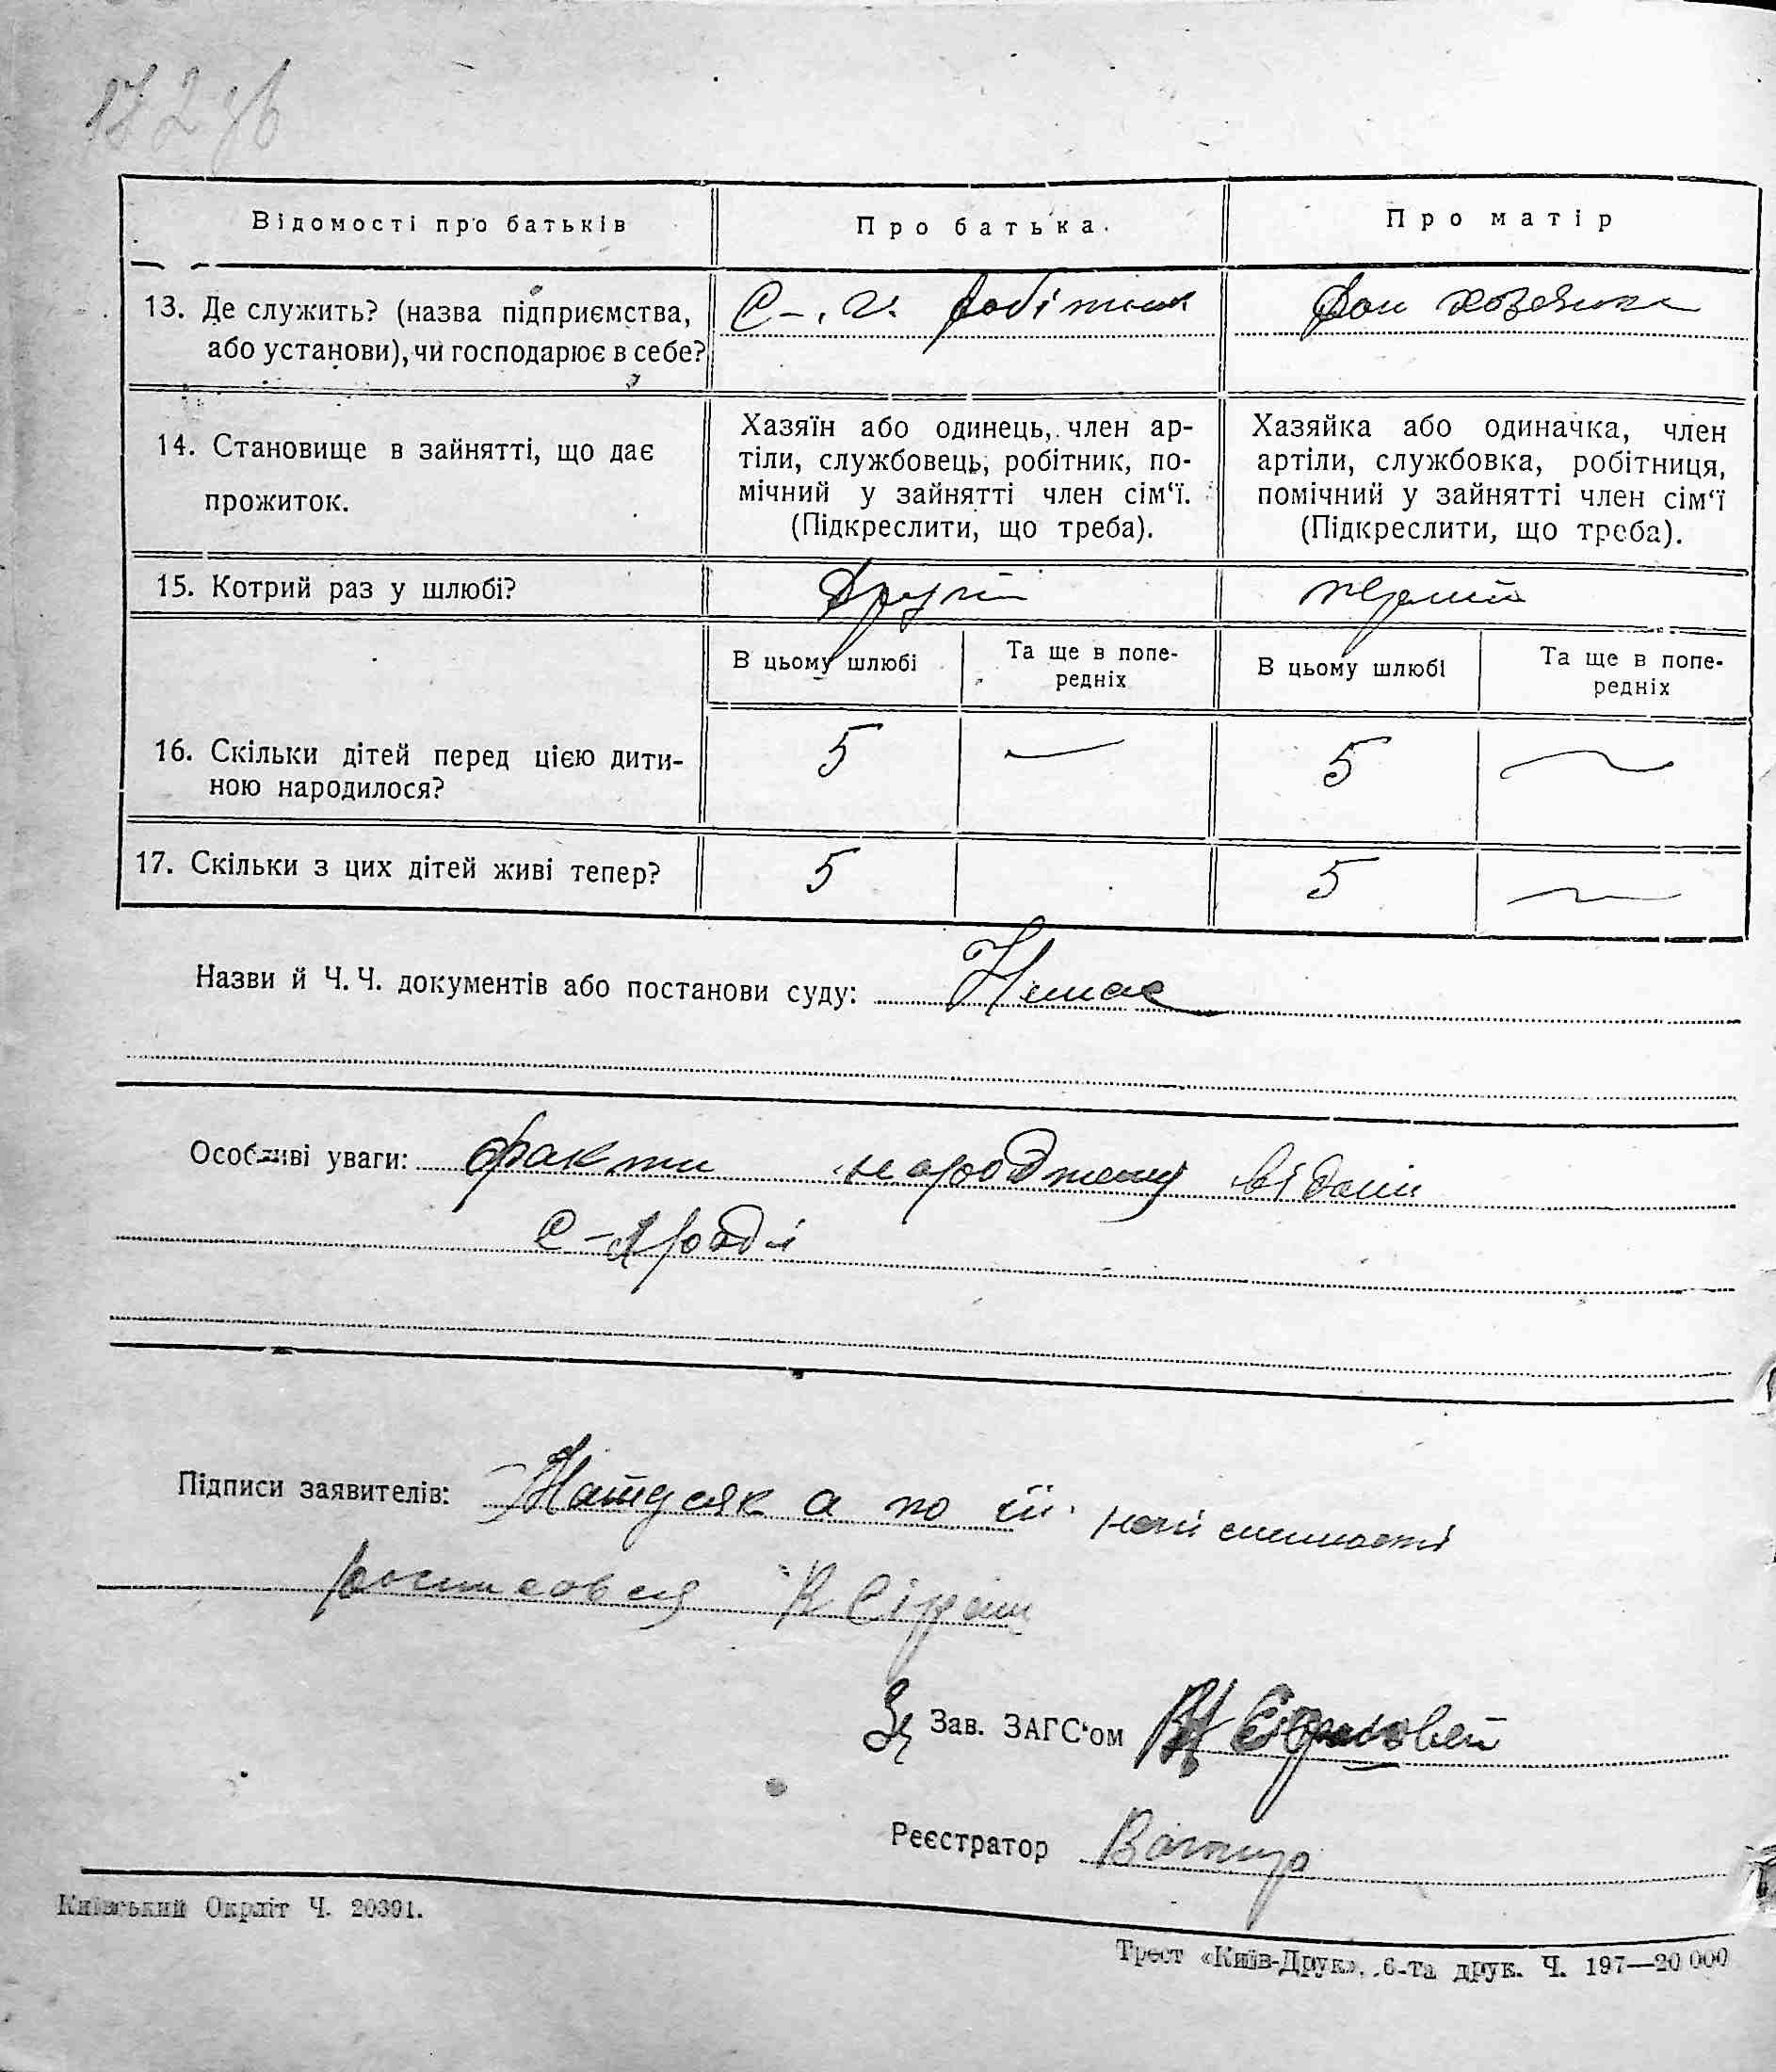 Відомості про батьків
Про батька.
Про матір
13. Де служить? (назва підприємства,
або установи), чи господарює в себе?
С-. г. робітник
Дом хозяйка
14. Становище в зайнятті, що дає
прожиток.
Хазяїн або одинець, член ар-
тіли, службовець, робітник, по-
мічний у зайнятті член сім‘ї.
(Підкреслити, що треба).
Хазяйка або одиначка, член
артіли, службовка, робітниця,
помічний у зайнятті член сім‘ї
(Підкреслити, що треба).
15. Котрий раз у шлюбі?
Другий
перший
В цьому шлюбі
Та ще в попе-
редніх
В цьому шлюбі
Та ще в попе-
редніх
16. Скільки дітей перед цією дити-
ною народилося?
5 —
5 —
17. Скільки з цих дітей живі тепер?
5
5 —
Назви й Ч. Ч. документів або постанови суду: Немає
Особливі уваги: факти народженя відомі
с-раді
Підписи заявителів: а по її неписьмености
росписовся
Зав. ЗАГС‘ом
Реєстратор
Київський Окрліт Ч. 20391.
Трест «Київ-Друк», 6-та друк. Ч. 197—20 000